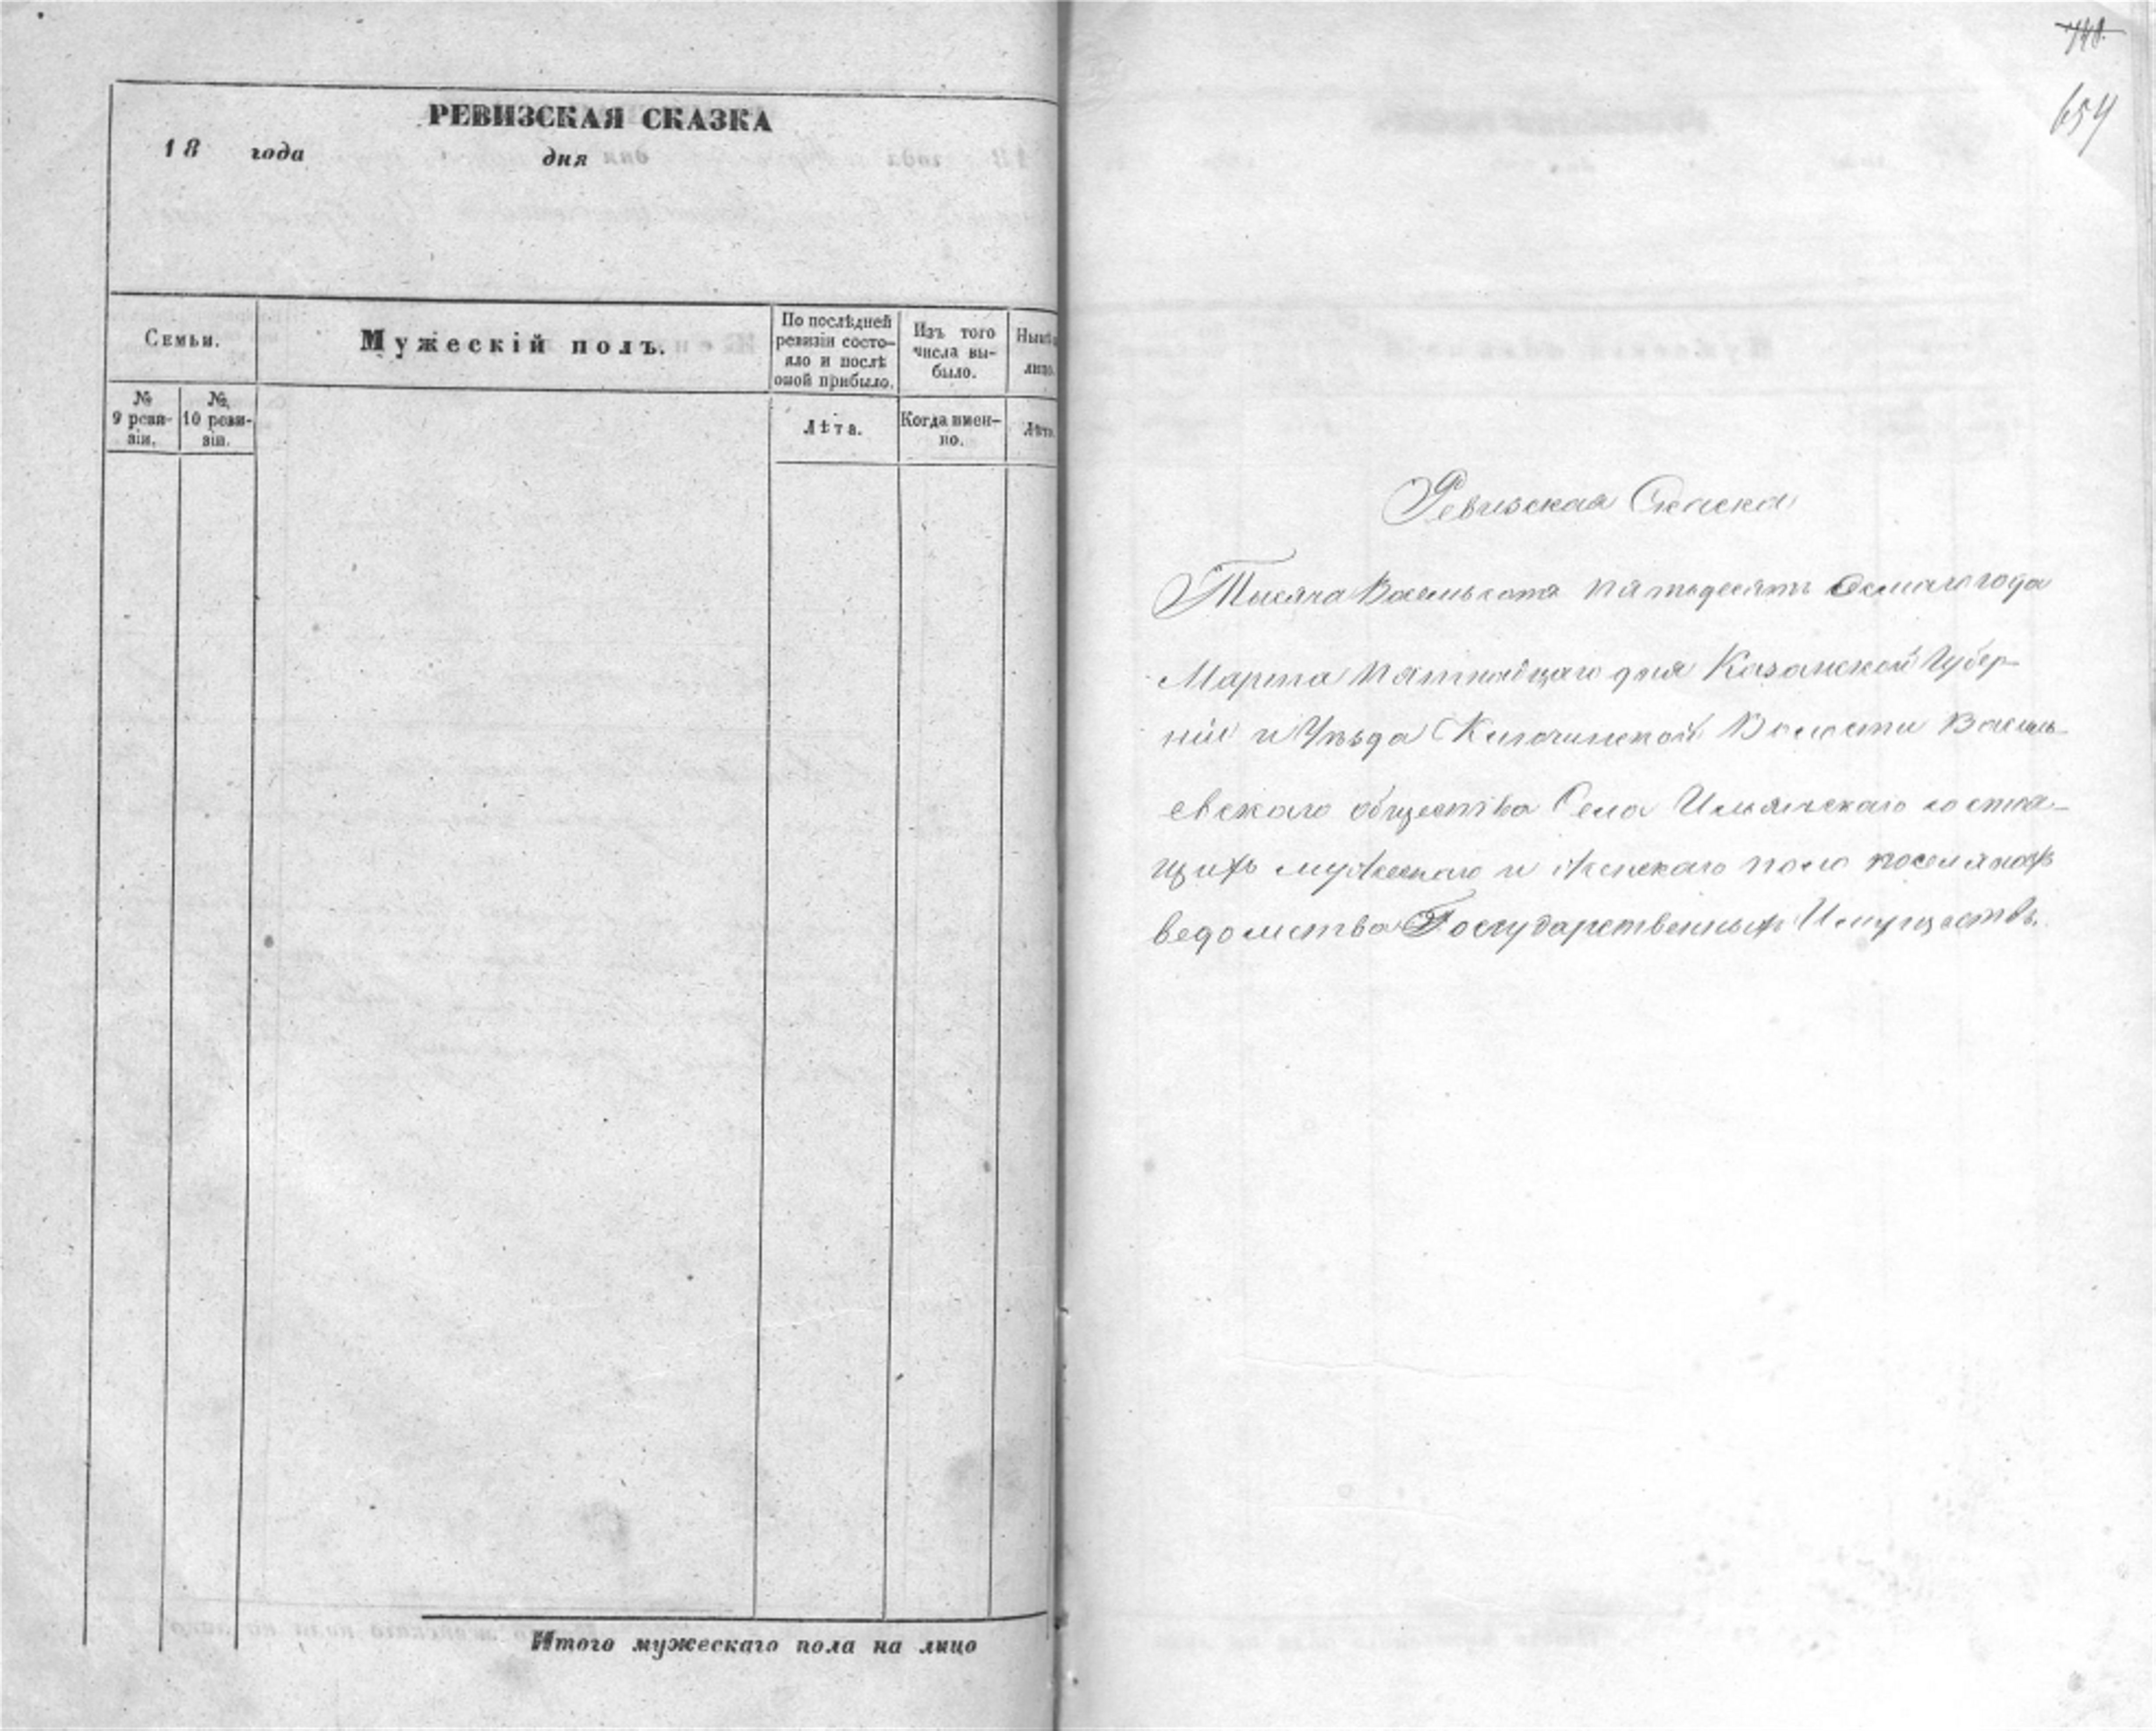 РЕВИЗСКАЯ СКАЗКА
18 года дня
Семьи.
Мужескій полъ.
По послѣдней
ревизіи состо-
яло и послѣ
оной прибыло.
Изъ того
числа вы-
было.
лицо.
№
9 реви-
зіи.
№
10 реви-
зіи.
Лѣта.
Когда имен-
но.
Лѣта.
Итого мужескаго пола на лицо
748.
654
Ревизская Скаска
Тысяча Восемьсотъ пятьдесятъ осмаго года
Марта пятнадцаго дня Казанской Губер-
ніи и Уѣзда Килочинской Волости Василь-
евскаго общества Села Ильинскаго состоя-
щихъ мужескаго и женскаго пола поселянахъ
ведомства Государственныхъ Имуществъ.